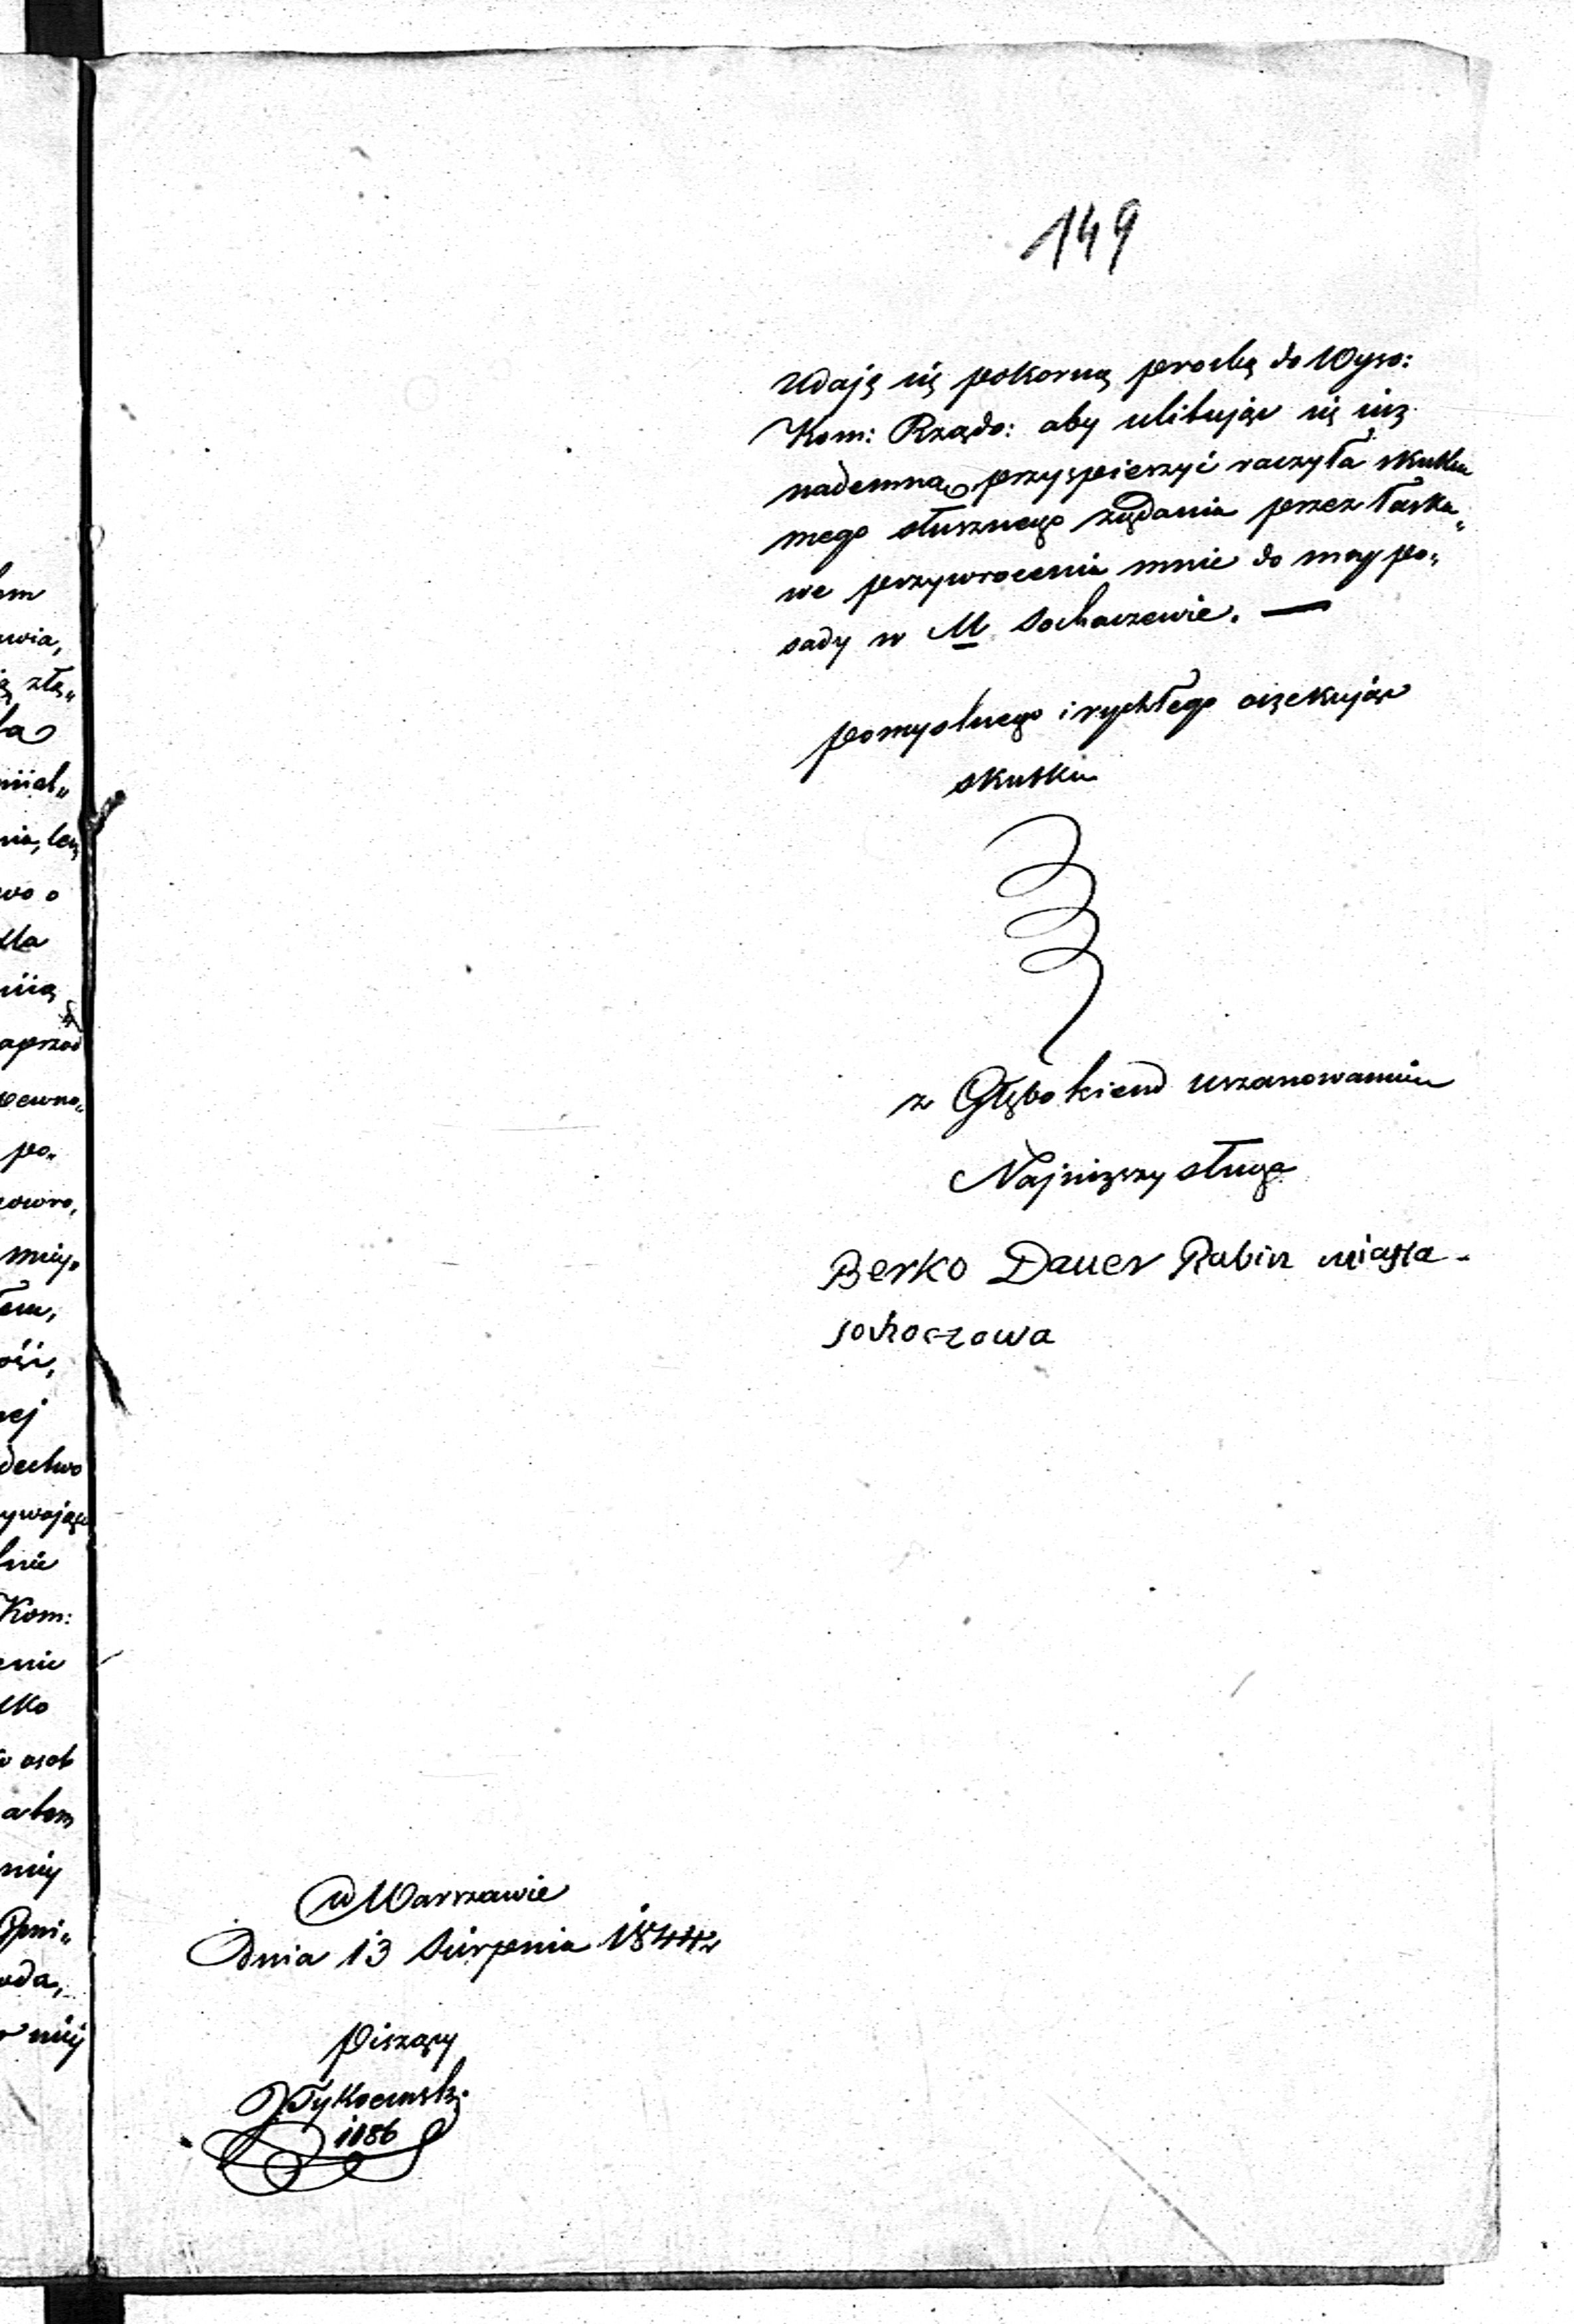 149
udaję się pokorną prośbą do Wyso:
Kom: Rządo: aby ulitując się iuż
nademną przyspieszyć raczyła skutku
mego słusznego żądania przez łaska„
we przywrocenia mnie do mey po„
sady w M Sochaczewie. —
pomyslnego i rychłego oczekując
skutku
z Głębokiem uszanowaniem
Najniższy sługa
Berko Dauer Rabin miasta
sochoczowa
w Warszawie
Dnia 13 Sierpnia 1844 r
Piszący
Tykocinski
wia,
zła„
la
nia, lecz
wo o
dla
aprzod
pewno„
po„
łem,
ości,
nej
dectwo
ywając
lnie
Kom:
enie
lko
osob
atem
miy
oda,